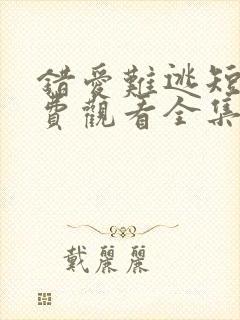 錯愛難逃短
費觀看全集
戴麗麗